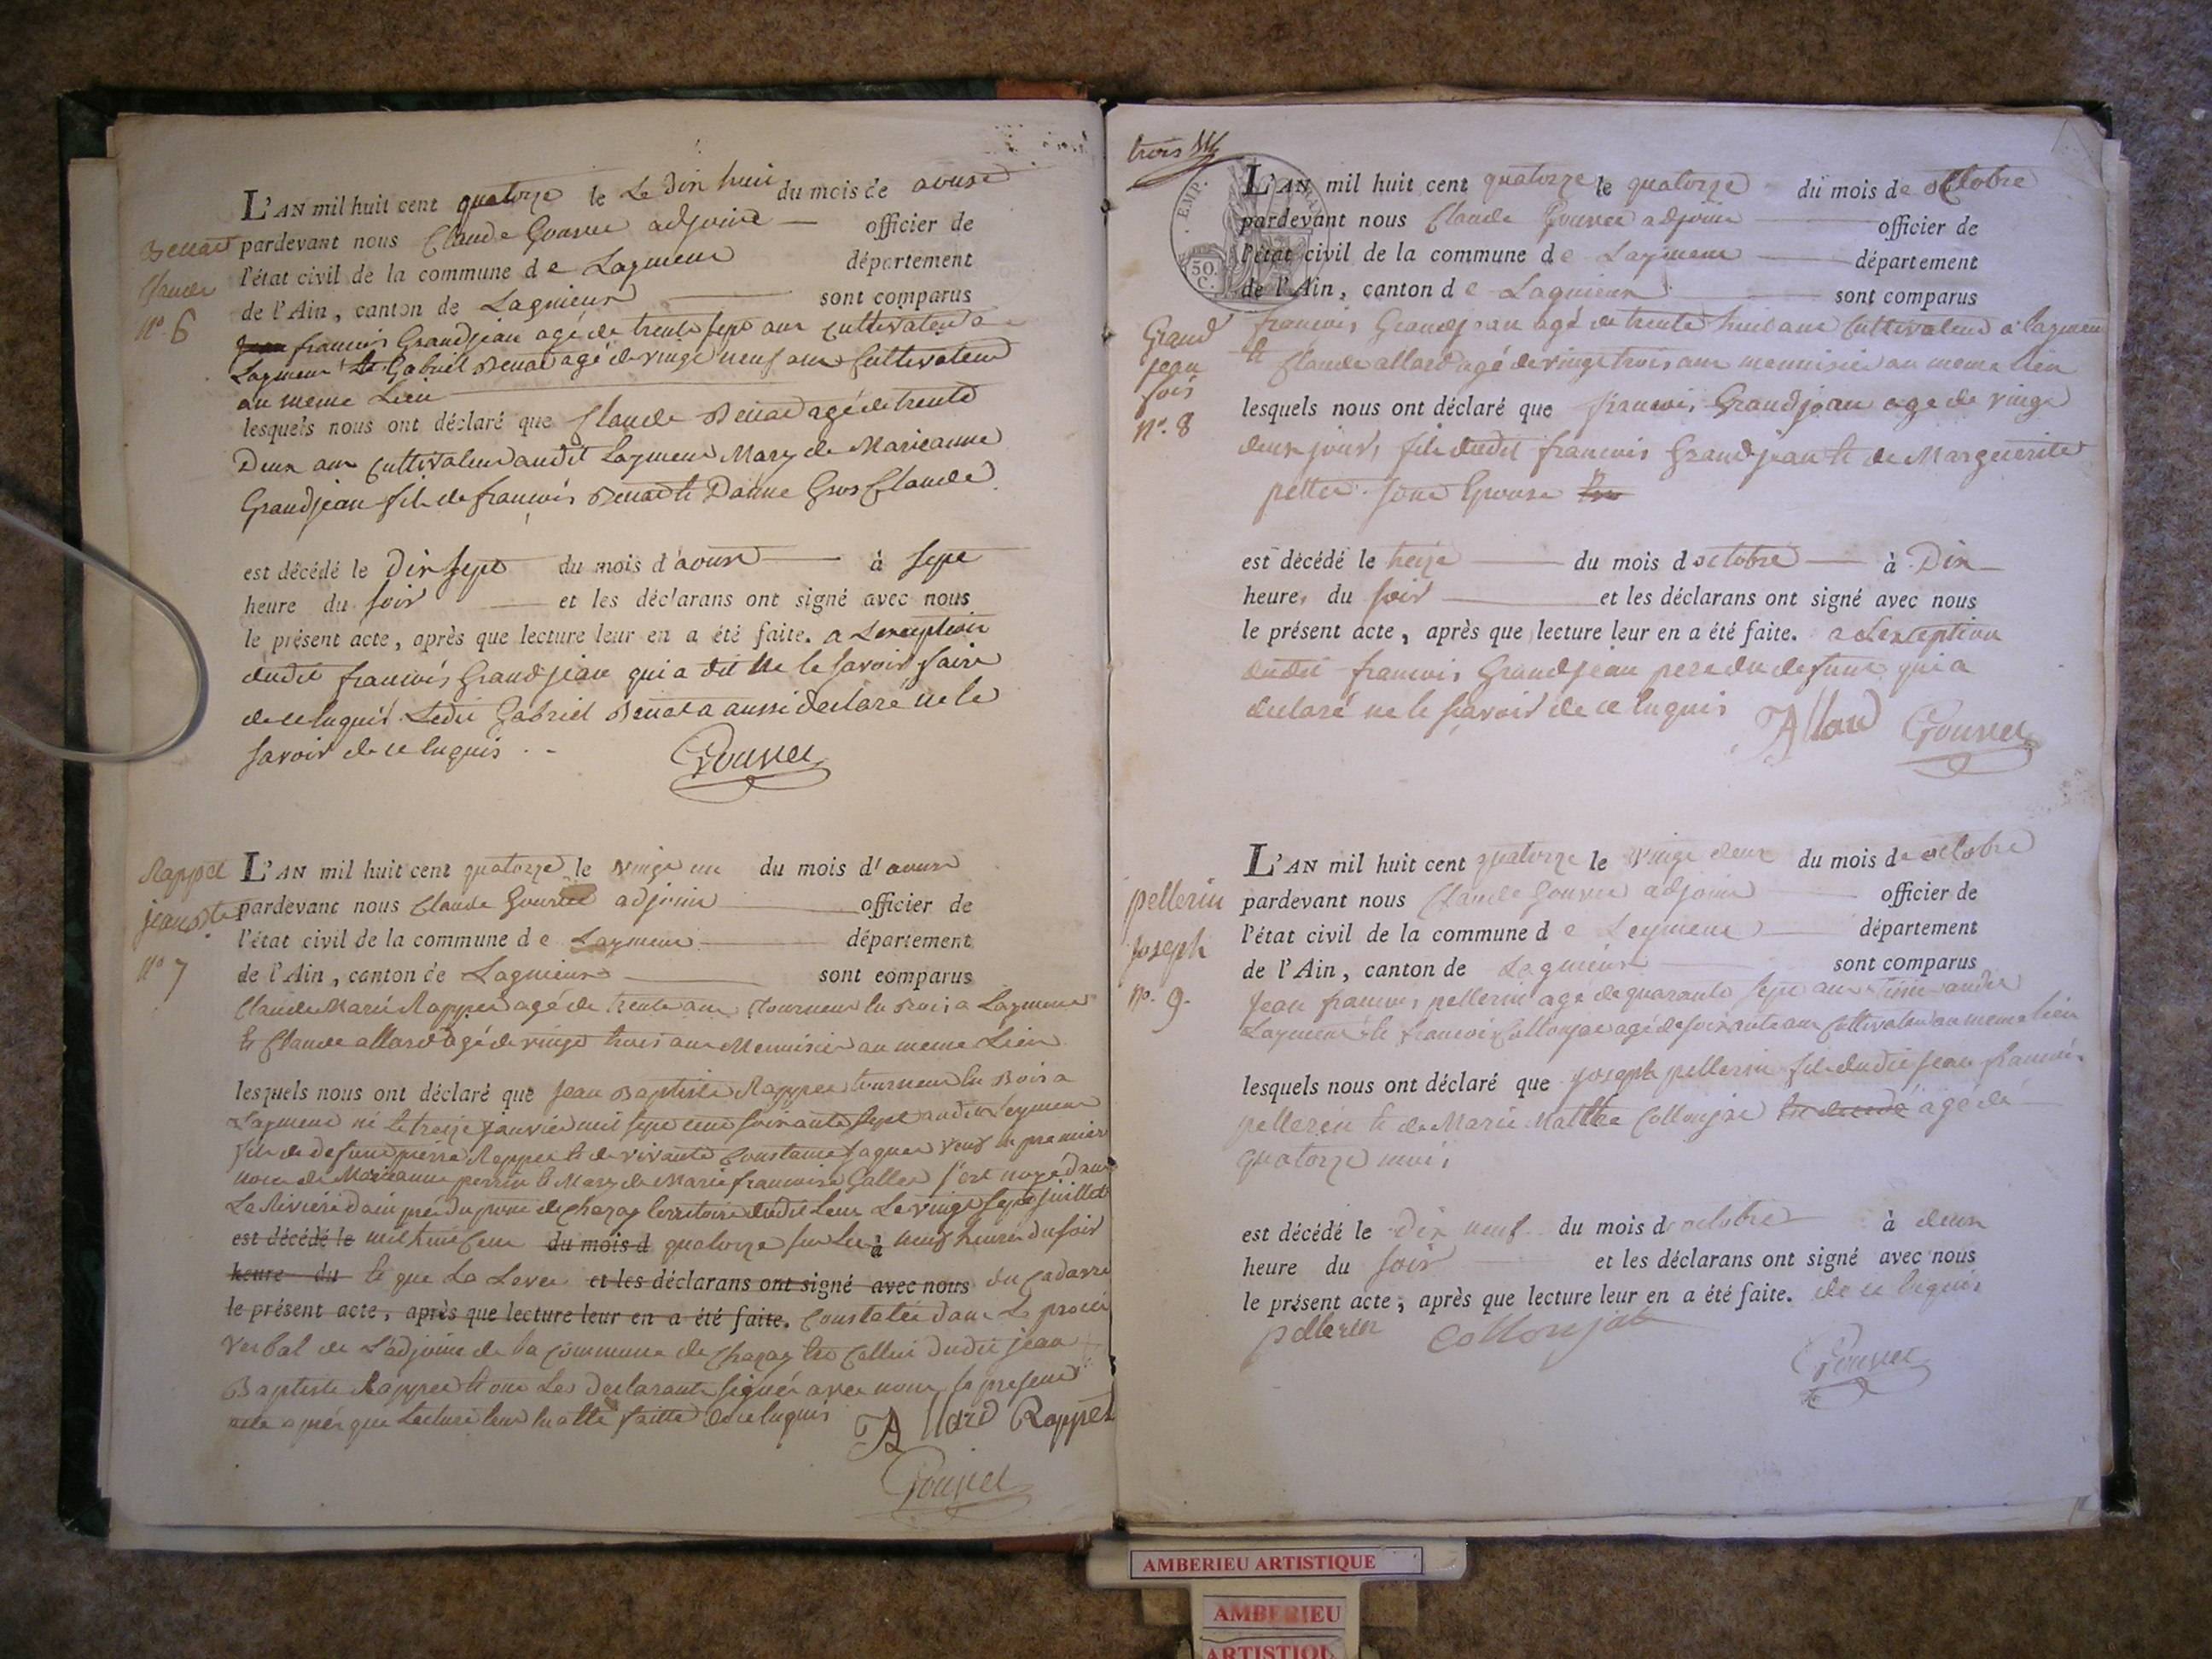 L'AN mil huit cent quatorze le Le dix huit du mois de aoust
Benait pardevant nous Claude Gouvret adjoint officier de
Claude l'état civil de la commune de Laymeur département
de l'Ain, canton de Lagnieux sont comparus
n°. 6
francois Grandjean agé de trente sept ans Cultivateur a
Laymeur et Gabriel Benat agé de vingt neuf ans Cultivateur
au meme Lieu
lesquels nous ont déclaré que Claude Benat agé de trente
Deux ans Cultivateur audit Laymeur Mary de Marieanne
Grandjean fils de francois Benat et Danne Gros Claude
est décédé le Dix sept du mois d'aoust à sept
heure du soir et les déclarans ont signé avec nous
le présent acte, après que lecture leur en a été faite. a Lexception
dudit francois Grandjean qui a dit ne le savoir faire
de ce Enquis Ledit Gabriel Benat a aussi declaré ne le
savoir de ce Enquis
Gouvret
Rappet L'AN mil huit cent quatorze le vingt un du mois d'aoust
jean Bte pardevant nous Claude Gouvret adjoint officier de
l'état civil de la commune de Laymeur département
n° 7 de l'Ain, canton de Lagnieux sont comparus
Claude Marie Rappet agé de trente ans Tourneur en Bois a Laymeur
et Claude allard agé de vingt trois ans Menuisier au meme Lieu
lesquels nous ont déclaré que Jean Baptiste Rappet tourneur en Bois a
Laymeur né le treize janvier mil sept cent soixante sept audit Leymeur
fils de defunt pierre Rappet et de vivante Constance veuf en premier
noce de Marieanne perrin et Mary de Marie francoise Gallet s'est noyé dans
La Riviere dain pré du pont de Chazay territoire dudit Lieu Le vingt sept juillet
est décédé le mil huit Cent du mois d quatorze sur Les à neuf heures du soir
heure du et que La Levée et les déclarans ont signé avec nous du Cadavre
le présent acte, après que lecture leur en a été faite. Constatée dans Le procé
verbal de L'adjoint de la Commune de Chazay est Cellui dudit jean
Baptiste Rappet et ont Les declarants signés avec nous le present
acte aprés que Lecture leur en a été faitte de ce Enquis
Allard Rappet
Gouvret
trois
EMP.
50.
C.
L'AN mil huit cent quatorze le quatorze du mois de octobre
pardevant nous Claude Gouvret adjoint officier de
l'état civil de la commune de Laymeur département
de l'Ain, canton de Lagnieux sont comparus
Grand
jean
fois
n°. 8
francois Grandjean agé de trente huit ans Cultivateur a laymeur
et Claude allard agé de vingt trois ans menuisier au meme lieu
lesquels nous ont déclaré que francois Grandjean agé de vingt
deux jours fils dudit francois Grandjean et de Marguerite
pettet sone Epouse
est décédé le treize du mois d octobre à Dix
heures du soir et les déclarans ont signé avec nous
le présent acte, après que lecture leur en a été faite. a Lexception
dudit francois Grandjean pere du defunt qui a
declaré ne le sçavoir de ce Enquis
Allard Gouvret
L'AN mil huit cent quatorze le vingt deux du mois de octobre
pellerin pardevant nous Claude Gouvret adjoint officier de
l'état civil de la commune de Leymeur département
joseph
de l'Ain, canton de Lagnieux sont comparus
n°. 9.
Jean francois pellerin agé de quarante sept ans audit
Laymeur et francois Collonjat agé de soixante ans Cultivateur au meme lieu
lesquels nous ont déclaré que joseph pellerin fils dudit jean francois
pellerin et de Marie Matthe Collonjat agé de
quatorze mois
est décédé le Dix neuf du mois d octobre à deux
heure du soir et les déclarans ont signé avec nous
le présent acte, après que lecture leur en a été faite. de ce Enquis
pellerin Collonjat
Gouvret
AMBERIEU ARTISTIQUE
AMBERIEU
ARTISTIQU